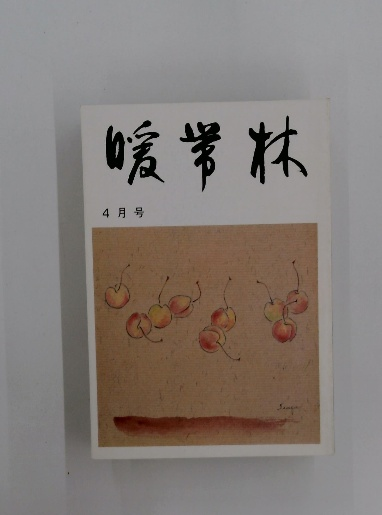 暖帯林
4月号